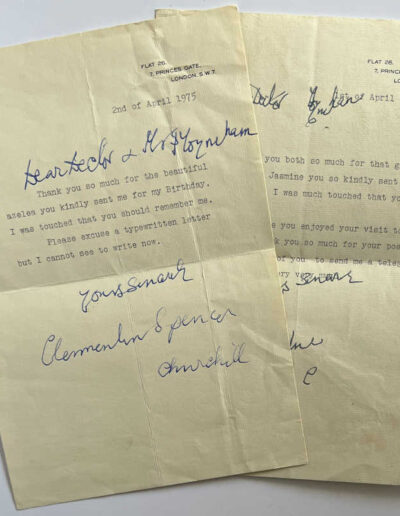 FLAT 26.
7, PRINCES GATE,
LONDON, S.W.7.
2nd of April 1975
Dear Doctor & Mrs
Thank you so much for the beautiful
azalea you kindly sent me for my Birthday.
I was touched that you should remember me.
Please excuse a typewritten letter
but I cannot see to write now.
Yours Sincerely
Clementine Spencer
Churchill
FLAT 26.
7, PRINCE
LO
of April
you both so much for that
Jasmine you so kindly sent
I was much touched that yo
you enjoyed your visit to
k you so much for your pos
you to send me a tele